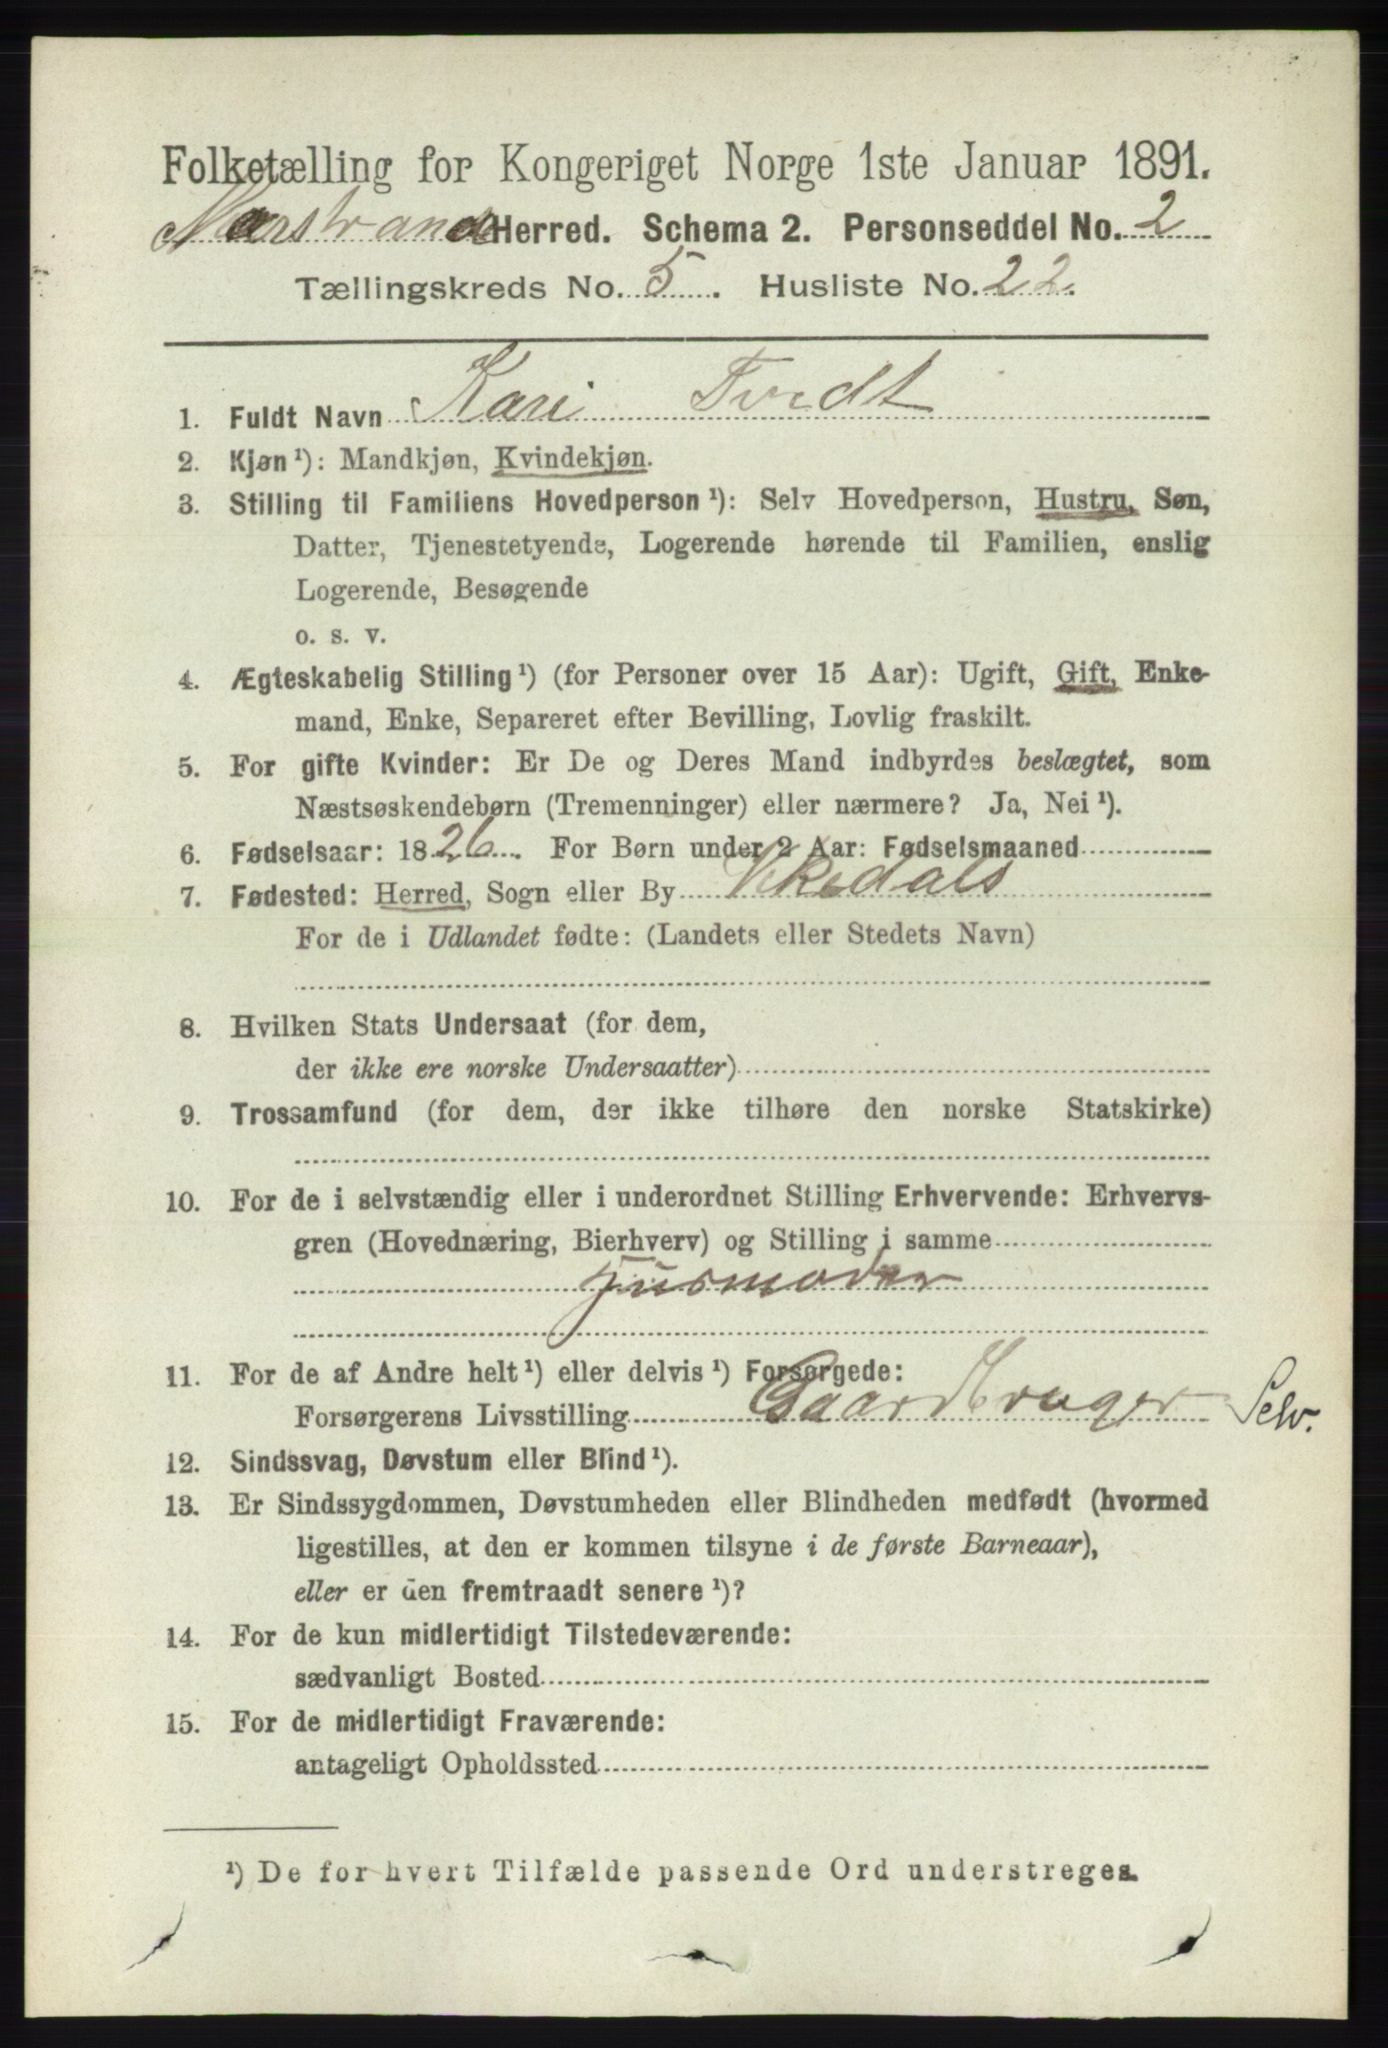 Folketælling for Kongeriget Norge 1ste Januar 1891.
Herred. Schema 2. Personseddel No. 2
Tællingskreds No. 5. Husliste No. 22.
1. Fuldt Navn Kari Tvedt
2. Kjøn ¹): Mandkjøn, Kvindekjøn.
3. Stilling til Familiens Hovedperson ¹): Selv Hovedperson, Hustru, Søn,
Datter, Tjenestetyende, Logerende hørende til Familien, enslig
Logerende, Besøgende
o. s. v.
4. Ægteskabelig Stilling ¹) (for Personer over 15 Aar): Ugift, Gift, Enke-
mand, Enke, Separeret efter Bevilling, Lovlig fraskilt.
5. For gifte Kvinder: Er De og Deres Mand indbyrdes beslægtet, som
Næstsøskendebørn (Tremenninger) eller nærmere? Ja, Nei ¹).
6. Fødselsaar: 1826. For Børn under 2 Aar: Fødselsmaaned
7. Fødested: Herred, Sogn eller By Vikedals
For de i Udlandet fødte: (Landets eller Stedets Navn)
8. Hvilken Stats Undersaat (for dem,
der ikke ere norske Undersaatter)
9. Trossamfund (for dem, der ikke tilhøre den norske Statskirke)
10. For de i selvstændig eller i underordnet Stilling Erhvervende: Erhvervs-
gren (Hovednæring, Bierhverv) og Stilling i samme
Husmoder
11. For de af Andre helt ¹) eller delvis ¹) Forsørgede:
Forsørgerens Livsstilling Gaardbruger Selv.
12. Sindssvag, Døvstum eller Blind ¹).
13. Er Sindssygdommen, Døvstumheden eller Blindheden medfødt (hvormed
ligestilles, at den er kommen tilsyne i de første Barneaar),
eller er den fremtraadt senere ¹)?
14. For de kun midlertidigt Tilstedeværende:
sædvanligt Bosted
15. For de midlertidigt Fraværende:
antageligt Opholdssted
¹) De for hvert Tilfælde passende Ord understreges.